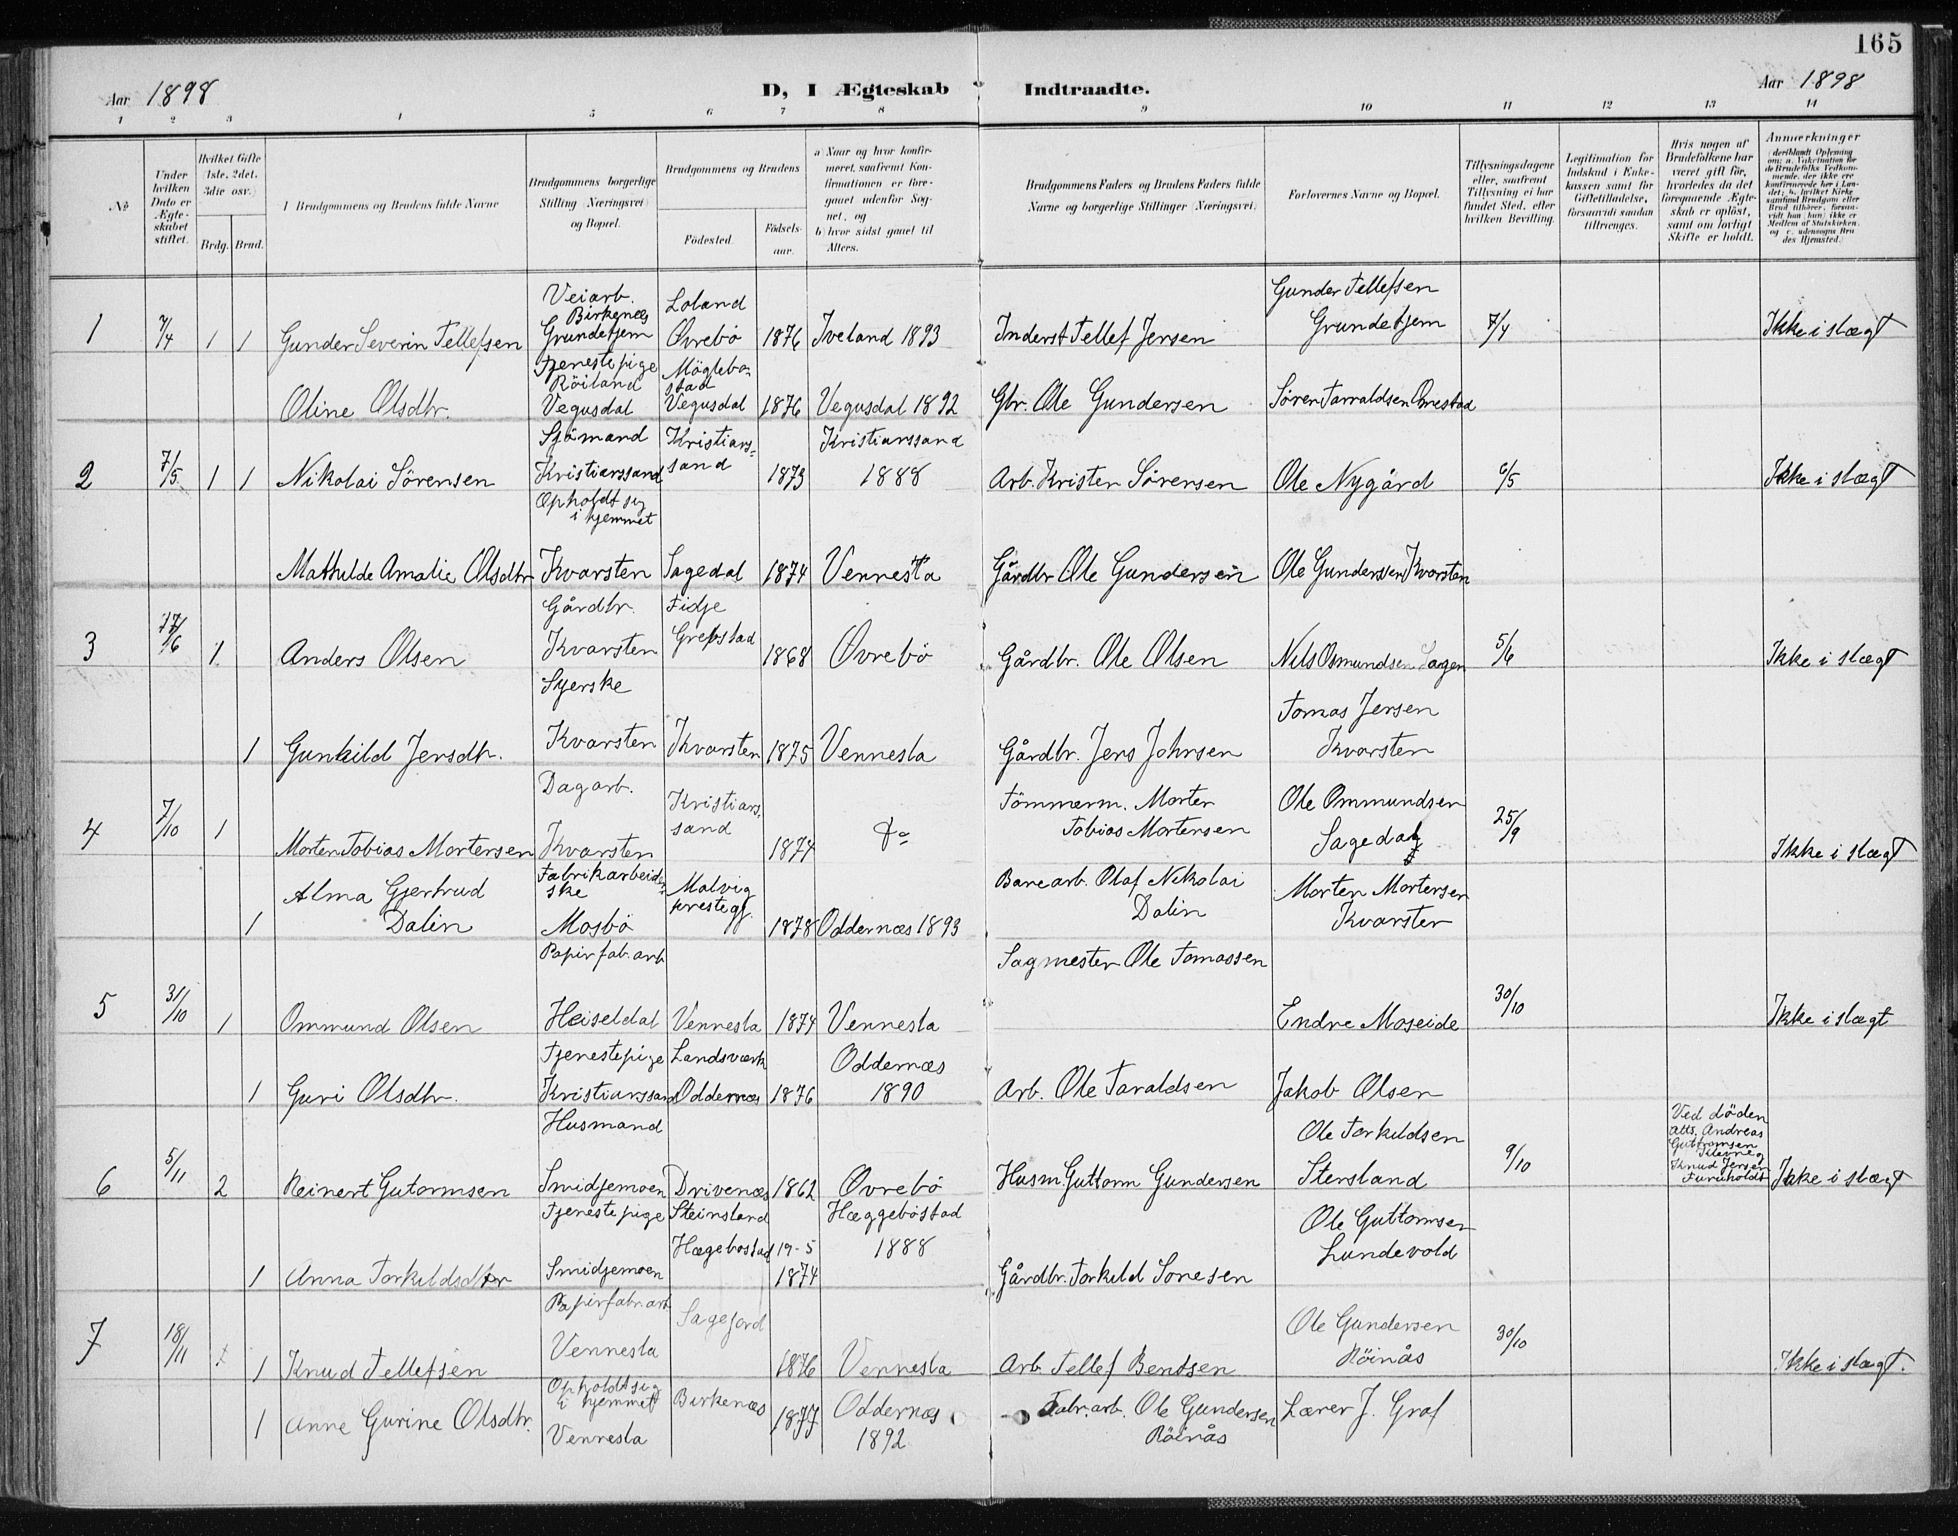 165
Aar 1898
D, I Ægteskab Indtraadte.
Aar 1898
1 2 3 4 5 6 7 8 9 10 11 12 13 14
No
Under hvilken Dato er Ægteskabet stiftet.
Hvilket Gifte (1ste, 2det, 3die osv.)
Brdg. Brud.
Brudgommens og Brudens fulde Navne
Brudgommens borgerlige Stilling (Næringsvei) og Bopæl.
Brudgommens og Brudens
Fødested.
Fødselsaar.
a) Naar og hvor konfirmeret, saafremt Konfirmationen er foregaaet udenfor Sognet, og
b) hvor sidst gaaet til Alters.
Brudgommens Faders og Brudens Faders fulde Navne og borgerlige Stillinger (Næringsvei).
Forlovernes Navne og Bopæl.
Tillysningsdagene eller, saafremt Tillysning ei har fundet Sted, efter hvilken Bevilling.
Legitimation for Indskud i Enkekassen samt for Giftetilladelse, forsaavidt saadan tiltrænges.
Hvis nogen af Brudefolkene har været gift før, hvorledes da det foregaaende Ægteskab er opløst, samt om lovligt Skifte er holdt.
Anmærkninger
1 7/4 1 1 Gunder Severin Tellefsen
Veiarb. Birkenæs Grundetjern
Loland Øvrebö 1876 Iveland 1893
Inderst Tellef Jensen
Gunder Tellefsen
Grundetjern
7/4
Ikke i slægt
Oline Olsdtr.
Tjenestepige Röiland Vegusdal
Möglebostad Vegusdal 1876 Vegusdal 1892
Gbr. Ole Gundersen
Sören Tarraldsen Onestad
2 7/5 1 1 Nikolai Sörensen
Sjömand Kristianssand
Kristianssand 1873
Kristianssand 1888
Arb. Kristen Sörensen
Ole Nygård
6/5
Ikke i slægt
Mathilde Amalie Olsdtr
Opholdt sig i hjemmet
Kvarsten Sagedal 1874 Vennesla
Gårdbr Ole Gundersen
Ole Gundersen Kvarsten
3 17/6 1. Anders Olsen
Gårdbr. Kvarsten
Fidje Grepstad 1868 Øvrebö
Gårdbr. Ole Olsen
Nils Osmundsen Sagen
5/6
Ikke i slægt
1 Gunhild Jensdtr.
Syerske Kvarsten
Kvarsten 1875 Vennesla
Gårdbr. Jens Johnsen
Tomas Jensen
Kvarsten
4 7/10 1 Morten Tobias Mortensen
Dagarb. Kvarsten
Kristianssand 1874 Do
Tömmerm. Morten
Tobias Mortensen
Ole Ommundsen
Sagedal
25/9
Ikke i slægt
1 Alma Gjertrud
Dalin
Fabrikarbeiderske Mosbö
Malvig prestegj. 1878 Oddernæs 1893
Barearb. Olaf Nikolai
Dalin
Morten Mortensen
Kvarsten
5 31/10 1 Ommund Olsen
Papirfab. arb
Heiseldal Vennesla 1874 Vennesla
Sagmester Ole Tomassen
Endre Moseide
30/10
Ikke i slægt
1 Guri Olsdtr.
Tjenestepige Kristianssand
Landsværk Oddernæs 1876
Oddernæs 1890
Arb. Ole Taraldsen
Jakob Olsen
6 5/11 2 Reinert Gutormsen
Husmand Smidjemoen
Drivenæs 1862 Øvrebö
Husm. Guttorm Gundersen
Ole Torkildsen
Stersland
9/10
Ved döden
Atts. Andreas
Guttormsen
Knud Jensen
Furuholdt
Ikke i slægt
1 Anna Torkildsdtr
Tjenestepige Smidjemoen
Steinsland Hægebostad 19-5 1874
Hæggeböstad 1888
Gårdbr. Torkild Sonesen
Ole Guttormsen
Lundevold
7 18/11 1 Knud Tellefsen
Papirfabr. arb Vennesla
Sagejord 1876 Vennesla
Arb Tellef Bentsen
Ole Gundersen
Röinås
30/10
Ikke i slægt.
1 Anne Gurine Olsdtr.
Opholdt sig i hjemmet Vennesla
Birkenæs 1877
Oddernæs 1892
Fabr. arb. Ole Gundersen
Röinås
Lærer J. Graf